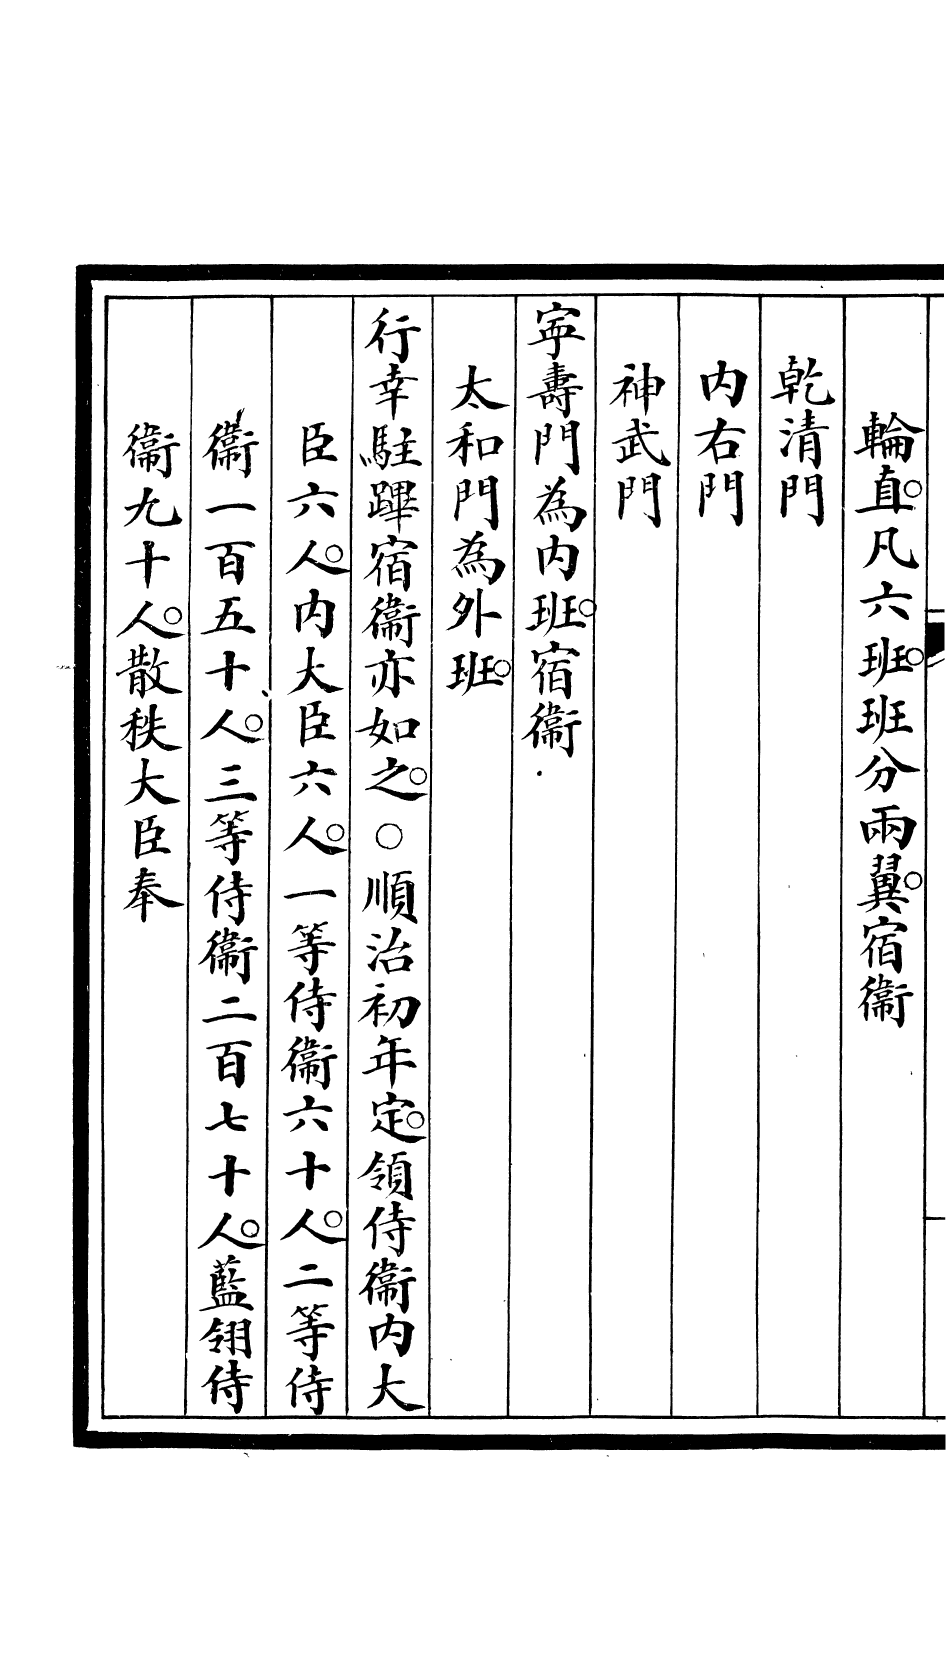 輪直。凡六班。班分兩翼。宿衞
乾清門
内右門
神武門
寜壽門為内班。宿衞
太和門為外班。
行幸駐蹕宿衞亦如之。○順治初年定。領侍衞内大
臣六人。内大臣六人。一等侍衞六十人。二等侍
衞一百五十人。三等侍衞二百七十人。藍翎侍
衞九十人。散秩大臣奉